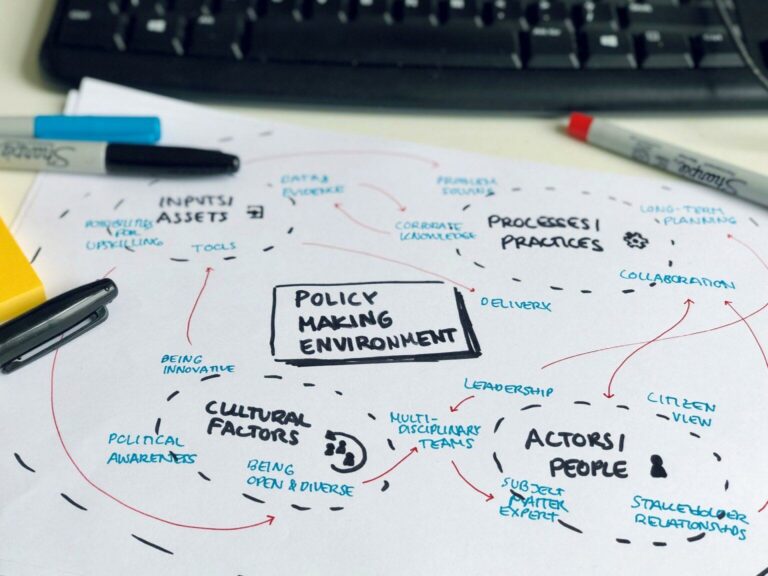 Sharpie
Sharpie
DATA &
EVIDENCE
PROBLEM
SOLVING
INPUTS/
ASSETS
POSSIBILITIES
FOR
UPSKILLING
TOOLS
CORPORATE
KNOWLEDGE
PROCESSES/
PRACTICES
LONG-TERM
PLANNING
COLLABORATION
DELIVERY
POLICY
MAKING
ENVIRONMENT
BEING
INNOVATIVE
LEADERSHIP
CITIZEN
VIEW
CULTURAL
FACTORS
MULTI-
DISCIPLINARY
TEAMS
POLITICAL
AWARENESS
BEING
OPEN & DIVERSE
ACTORS/
PEOPLE
SUBJECT
MATTER
EXPERT
STAKEHOLDER
RELATIONSHIPS